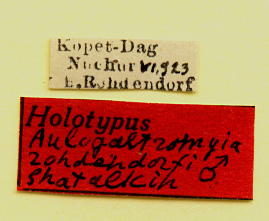 Kopet-Dag
Nuchur VI,923
B. Rohdendorf
Holotypus
Aulogastromyia
rohdendorfi ♂
Shatalkin